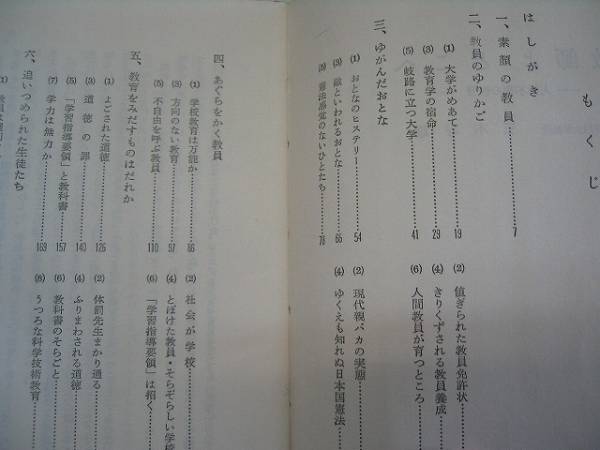 もくじ
はしがき
一、素顔の教員……7
二、教員のゆりかご
(1) 大学がめあて……19
(2) 値ぎられた教員免許状……
(3) 教育学の宿命……29
(4) きりくずされる教員養成……
(5) 岐路に立つ大学……41
(6) 人間教員が育つところ……
三、ゆがんだおとな
(1) おとなのヒステリー……54
(2) 現代親バカの実態……
(3) 敵といわれるおとな……66
(4) ゆくえも知れぬ日本国憲法……
(5) 憲法感覚のないひとたち……78
四、あぐらをかく教員
(1) 学校教育は万能か……86
(2) 社会が学校……
(3) 方向のない教育……97
(4) とぼけた教員・そらぞらしい学校
(5) 不自由を呼ぶ教員……110
(6) 「学習指導要領」は招く……
五、教育をみだすものはだれか
(1) よごされた道徳……126
(2) 体罰先生まかり通る……
(3) 道徳の罪……140
(4) ふりまわされる道徳……
(5) 「学習指導要領」と教科書……157
(6) 教科書のそらごと……
(7) 学力は無力か……169
(8) うつろな科学技術教育……
六、追いつめられた生徒たち
(1) 教員は